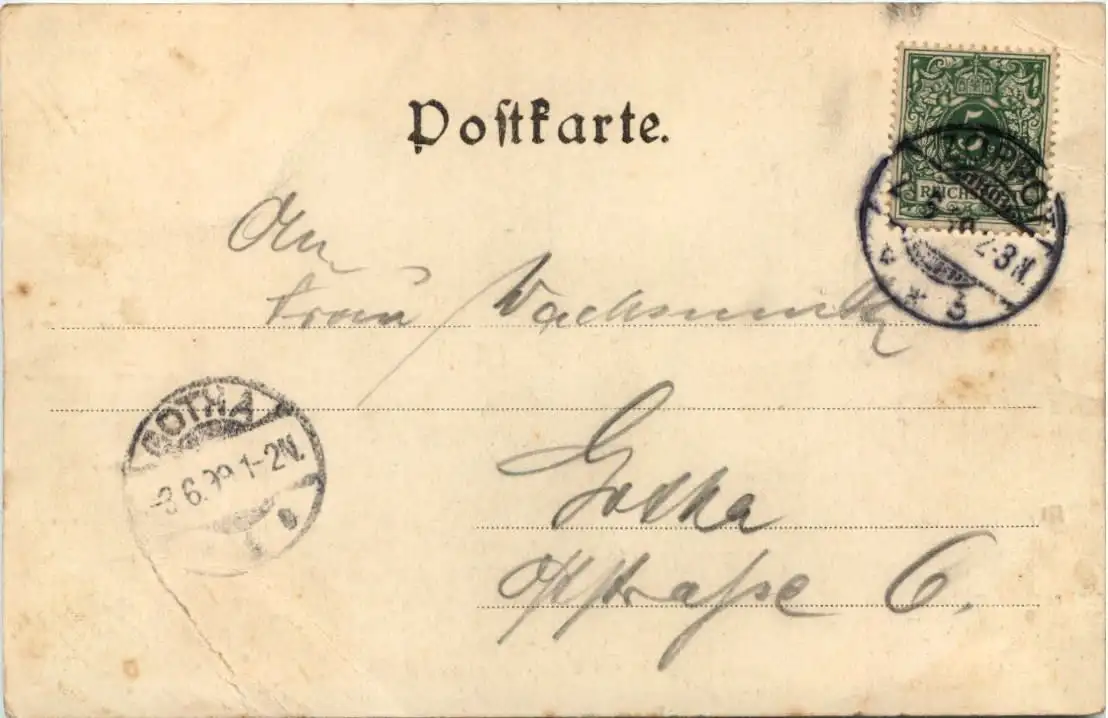 Postkarte.
5
REICHSPOST
ZOPPOT
2-3N.
An
Frau Wachsmuth
GOTHA
-8.6.99.1-2N.
Gotha
Oststraße 6.